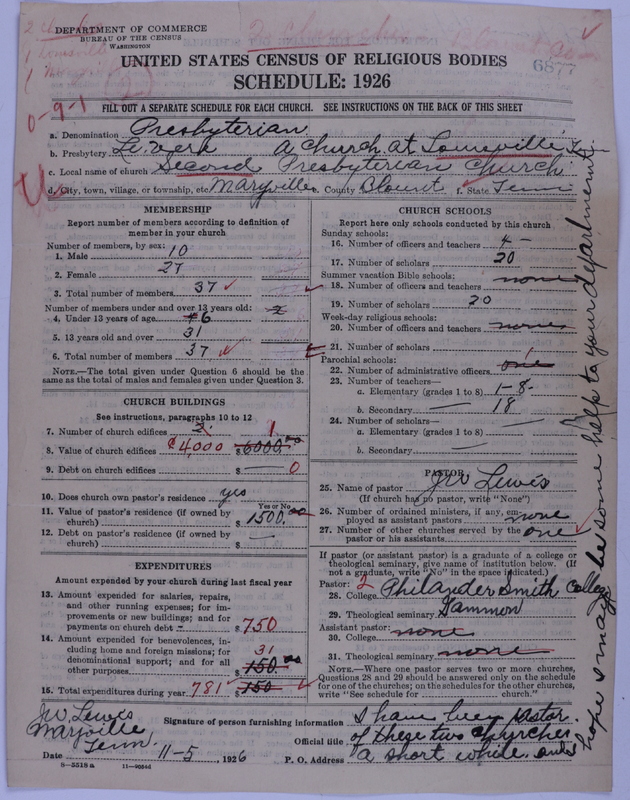 DEPARTMENT OF COMMERCE
BUREAU OF THE CENSUS
WASHINGTON
UNITED STATES CENSUS OF RELIGIOUS BODIES
SCHEDULE: 1926
6877
0-9-1
FILL OUT A SEPARATE SCHEDULE FOR EACH CHURCH. SEE INSTRUCTIONS ON THE BACK OF THIS SHEET
a. Denomination Presbyterian
b. Presbytery Le Vere A Church at Louisville, Tenn
c. Local name of church Second Presbyterian Church
d. City, town, village, or township, etc. Maryville e. County Blount f. State Tenn
MEMBERSHIP
Report number of members according to definition of member in your church
Number of members, by sex:
1. Male 10
2. Female 27
3. Total number of members 37
Number of members under and over 13 years old:
4. Under 13 years of age 6
5. 13 years old and over 31
6. Total number of members 37
NOTE.—The total given under Question 6 should be the same as the total of males and females given under Question 3.
CHURCH BUILDINGS
See instructions, paragraphs 10 to 12
7. Number of church edifices 2 1
8. Value of church edifices $4,000 $6000.00
9. Debt on church edifices $ — 0
10. Does church own pastor's residence yes
Yes or No
11. Value of pastor's residence (if owned by church) $1500.00
12. Debt on pastor's residence (if owned by church) $ —
EXPENDITURES
Amount expended by your church during last fiscal year
13. Amount expended for salaries, repairs, and other running expenses; for improvements or new buildings; and for payments on church debt $750
14. Amount expended for benevolences, including home and foreign missions; for denominational support; and for all other purposes 31 $150.00
15. Total expenditures during year 781 $150
CHURCH SCHOOLS
Report here only schools conducted by this church
Sunday schools:
16. Number of officers and teachers 4 —
17. Number of scholars 20
Summer vacation Bible schools:
18. Number of officers and teachers none
19. Number of scholars 20
Week-day religious schools:
20. Number of officers and teachers none
21. Number of scholars
Parochial schools:
22. Number of administrative officers one
23. Number of teachers—
a. Elementary (grades 1 to 8) 1-8-
b. Secondary — 18
24. Number of scholars—
a. Elementary (grades 1 to 8) —
b. Secondary —
PASTOR
25. Name of pastor JW Lewis
(If church has no pastor, write "None")
26. Number of ordained ministers, if any, employed as assistant pastors none
27. Number of other churches served by the pastor or his assistants one
If pastor (or assistant pastor) is a graduate of a college or theological seminary, give name of institution below. (If not a graduate, write "No" in the space indicated.)
Pastor: 2
28. College Philander Smith College
29. Theological seminary Gammon
Assistant pastor:
30. College none
31. Theological seminary none
NOTE.—Where one pastor serves two or more churches, Questions 28 and 29 should be answered only on the schedule for one of the churches; on the schedules for the other churches, write "See schedule for ........ church."
JW Lewis
Maryville
Tenn.
Signature of person furnishing information I have been pastor
Official title of these two churches
Date 11-5, 1926 P. O. Address a short while and
hope I may be some help to your department
8—5518a 11—96546